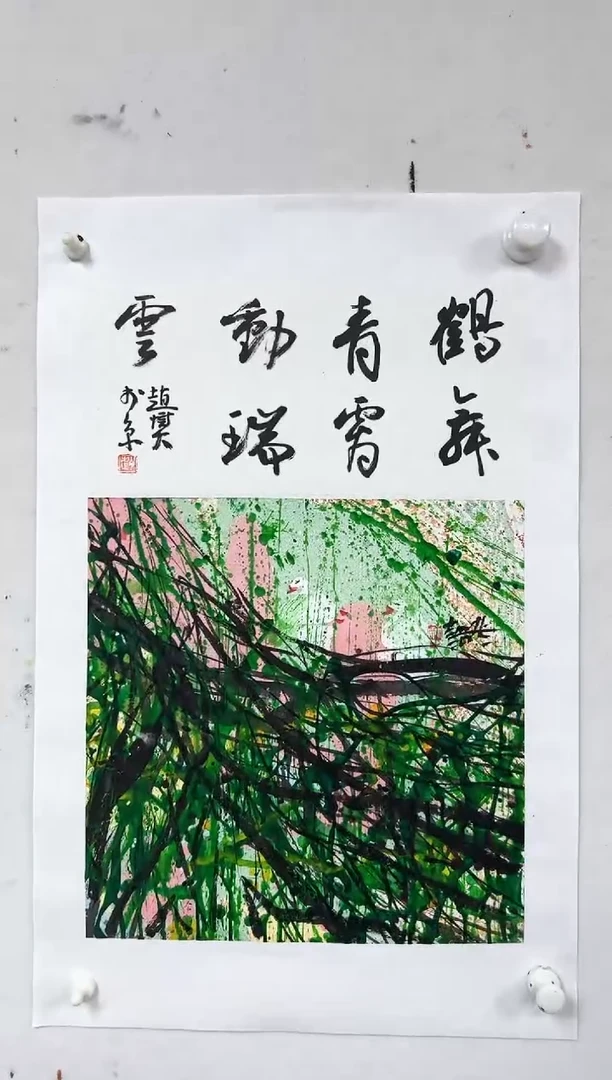 鶴舞
青霄
動瑞
雲
趙
於京